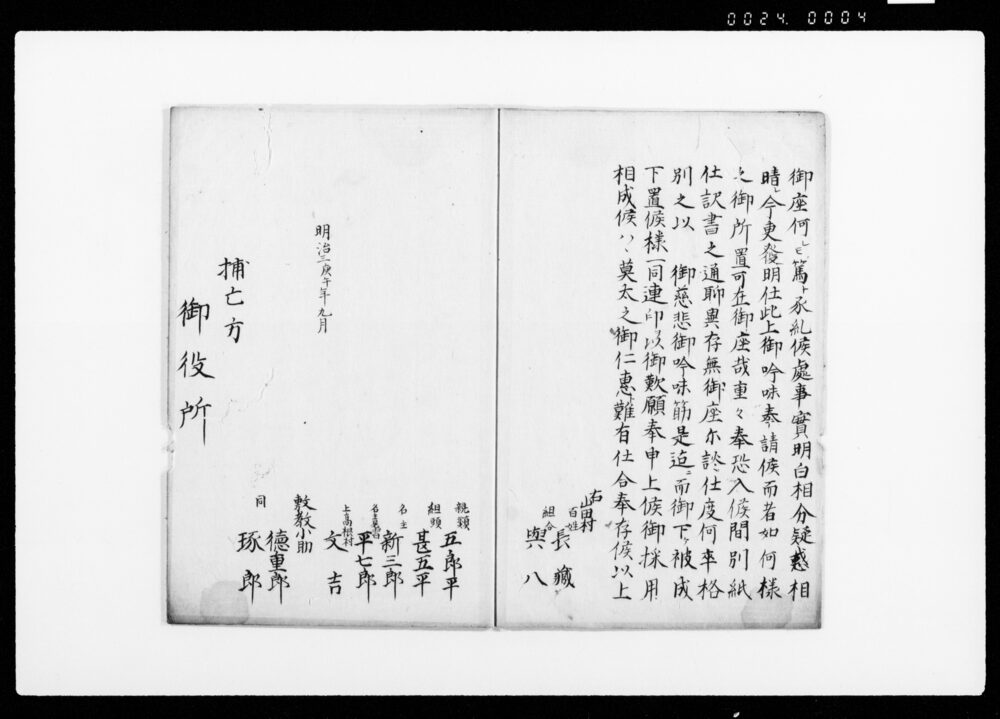 0024. 0004
御座何レモ篤ト承糺候處事實明白相分疑惑相
晴レ今更發明仕此上御吟味奉請候而者如何様
之御所置可在御座哉重々奉恐入候間別紙
仕訳書之通聊異存無御座尓談仕度何卒格
別之以 御慈悲御吟味筋是迠ニ而御下ケ被成
下置候様一同連印以御歎願奉申上候御採用
相成候ハヽ莫太之御仁恵難有仕合奉存候以上
右山田村
百姓 長蔵
組合 與八
親類 五郎平
組頭 甚五平
名主 新三郎
平七郎
上高根村 文吉
敷教小助
徳重郎
同 琢郎
明治三庚午年九月
捕亡方
御役所